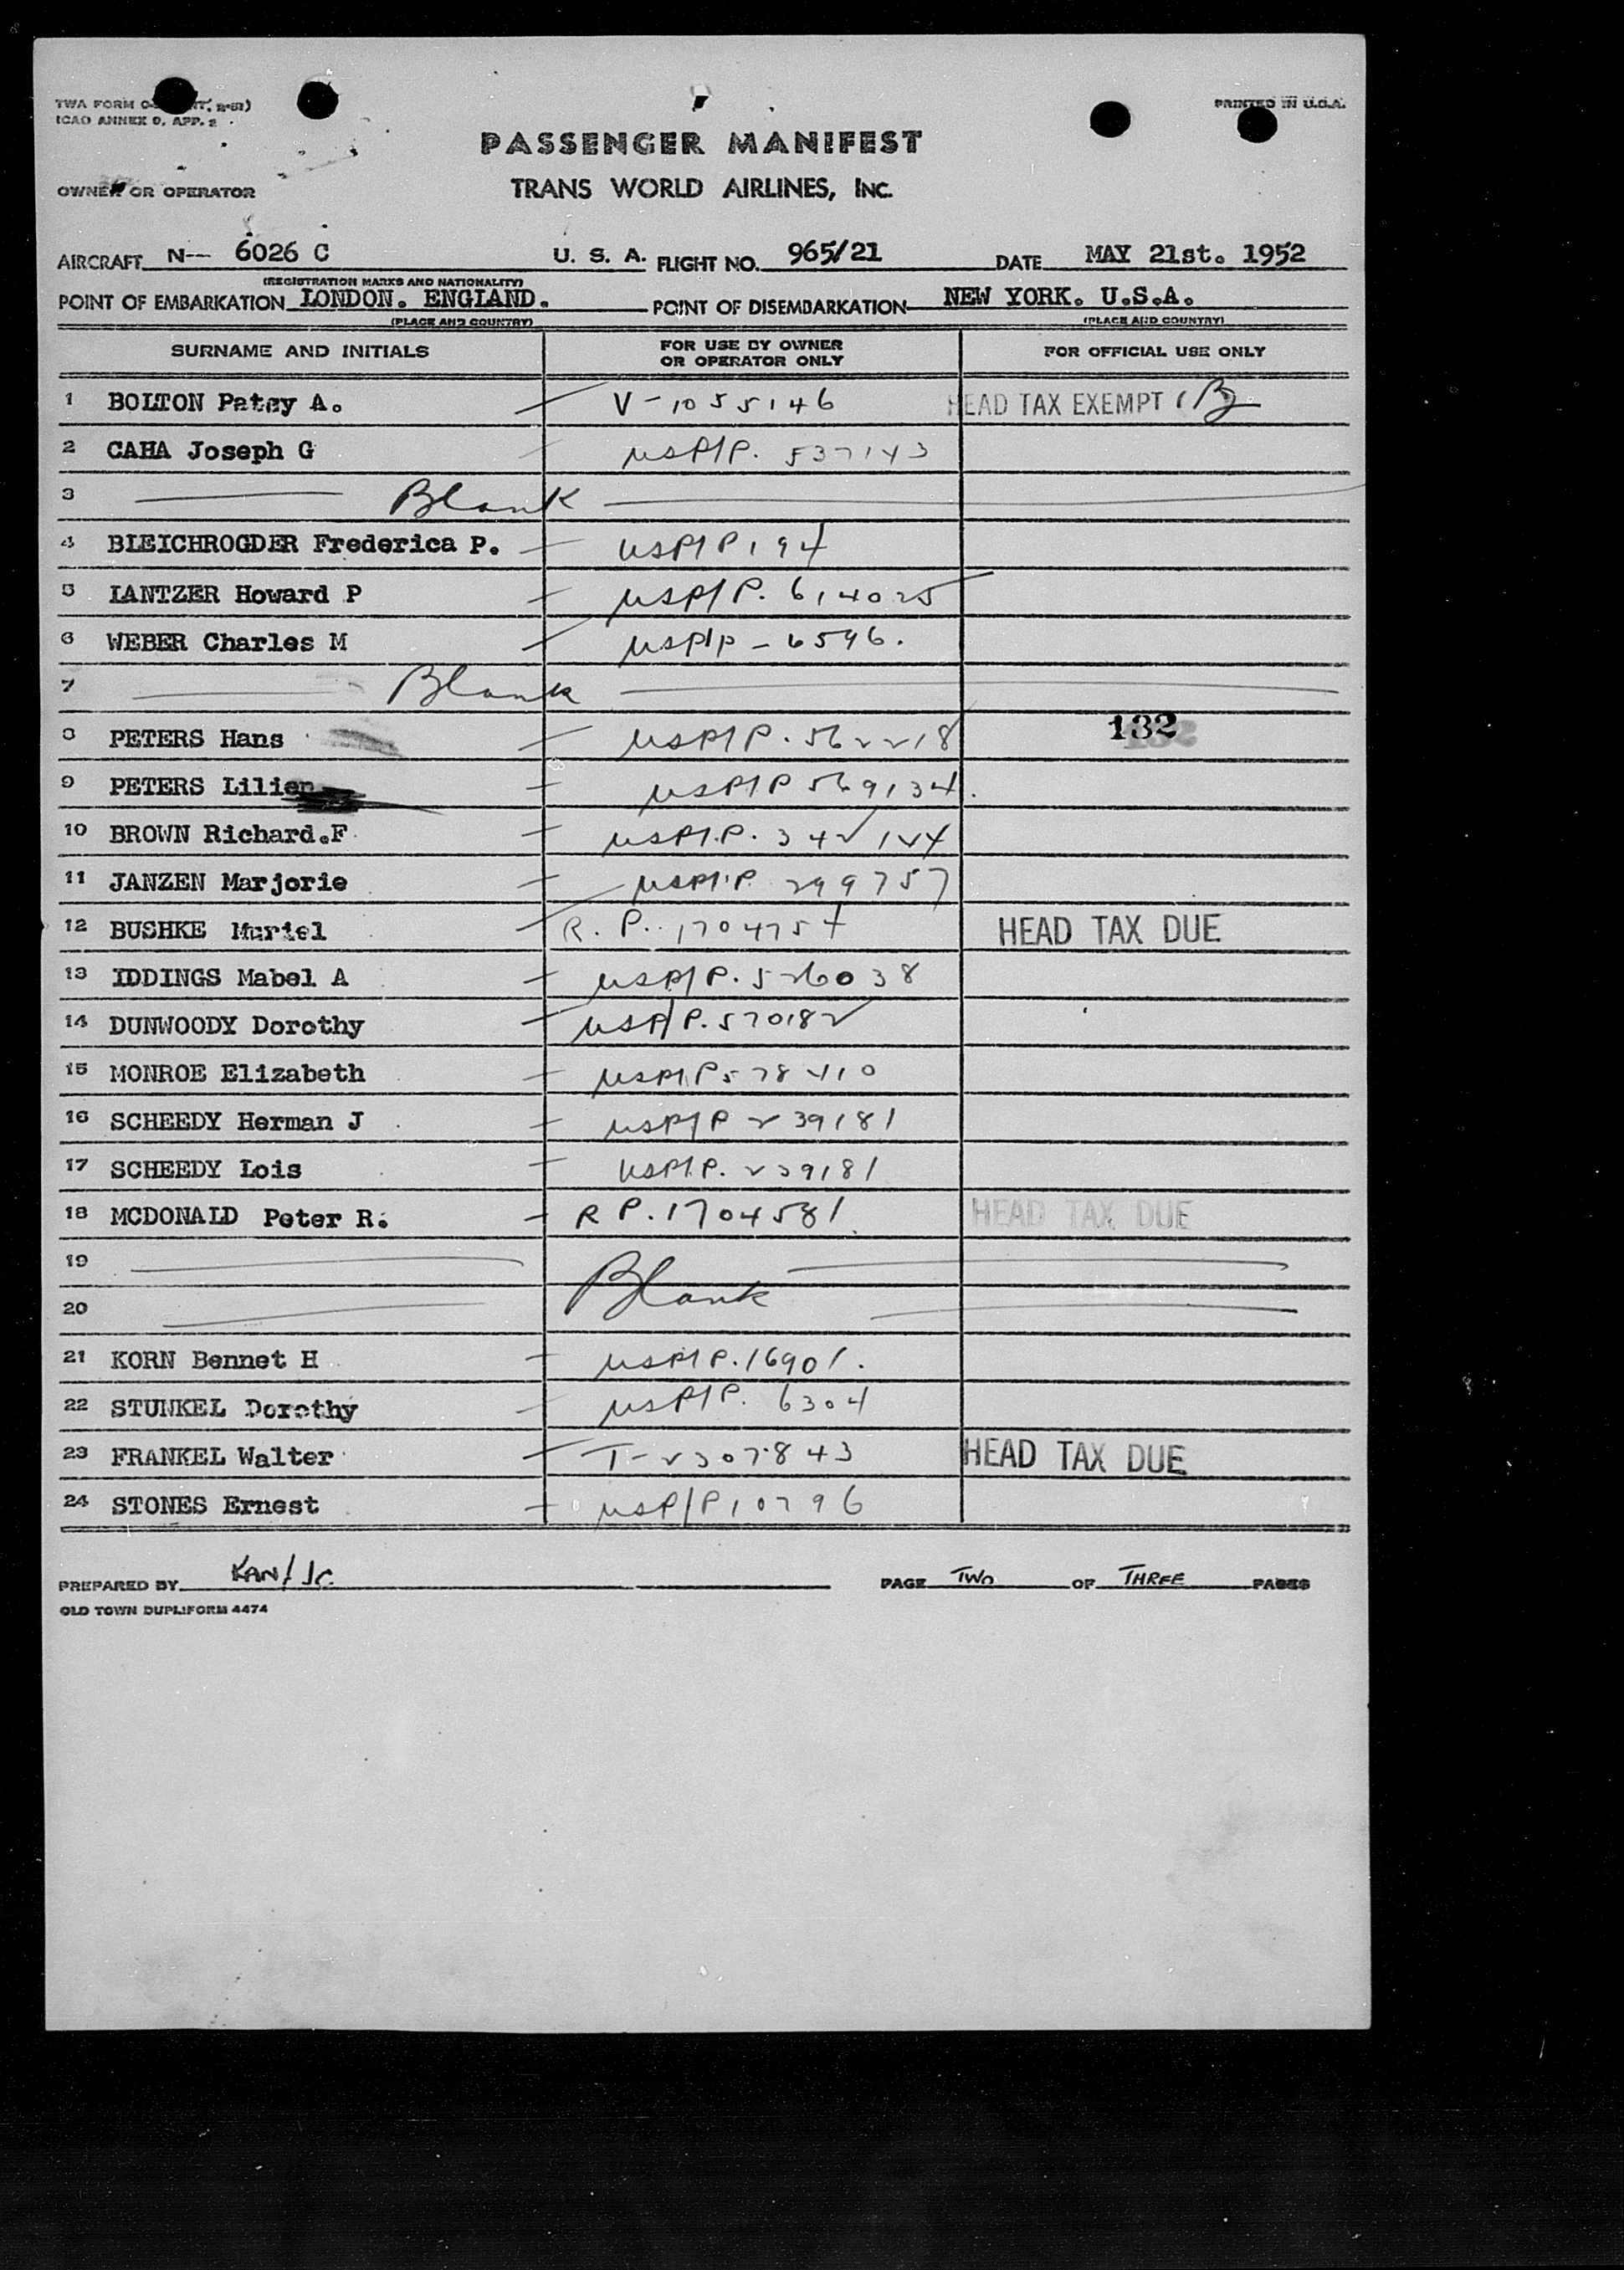 TWA FORM
ICAO ANNEX 9, APP. 2
PRINTED IN U.S.A.
PASSENGER MANIFEST
OWNER OR OPERATOR
TRANS WORLD AIRLINES, INC.
AIRCRAFT N-- 6026 C U. S. A. FLIGHT NO. 965/21 DATE MAY 21st. 1952
(REGISTRATION MARKS AND NATIONALITY)
POINT OF EMBARKATION LONDON. ENGLAND. POINT OF DISEMBARKATION NEW YORK. U.S.A.
(PLACE AND COUNTRY) (PLACE AND COUNTRY)
SURNAME AND INITIALS FOR USE BY OWNER OR OPERATOR ONLY FOR OFFICIAL USE ONLY
1 BOLTON Patsy A. V-1055146 HEAD TAX EXEMPT
2 CAHA Joseph G USP/P. 537143
3 Blank
4 BLEICHROGDER Frederica P. USP/P 194
5 LANTZER Howard P USP/P. 614025
6 WEBER Charles M USP/P - 6596.
7 Blank
8 PETERS Hans USP/P. 562218 132
9 PETERS Lilien USP/P 569134.
10 BROWN Richard.F USP/.P. 342124
11 JANZEN Marjorie USP/P 299757
12 BUSHKE Muriel R. P. 1704754 HEAD TAX DUE
13 IDDINGS Mabel A USP/P. 526038
14 DUNWOODY Dorothy USP/P. 570182
15 MONROE Elizabeth USP/P 578210
16 SCHEEDY Herman J USP/P 239181
17 SCHEEDY Lois USP/P. 239181
18 MCDONALD Peter R. R P. 1704581 HEAD TAX DUE
19
20 Blank
21 KORN Bennet H USP/P. 16901.
22 STUNKEL Dorothy USP/P. 6304
23 FRANKEL Walter T-2307843 HEAD TAX DUE
24 STONES Ernest USP/P 10796
PREPARED BY KAN/Jr. PAGE TWO OF THREE PAGES
OLD TOWN DUPLIFORM 4474